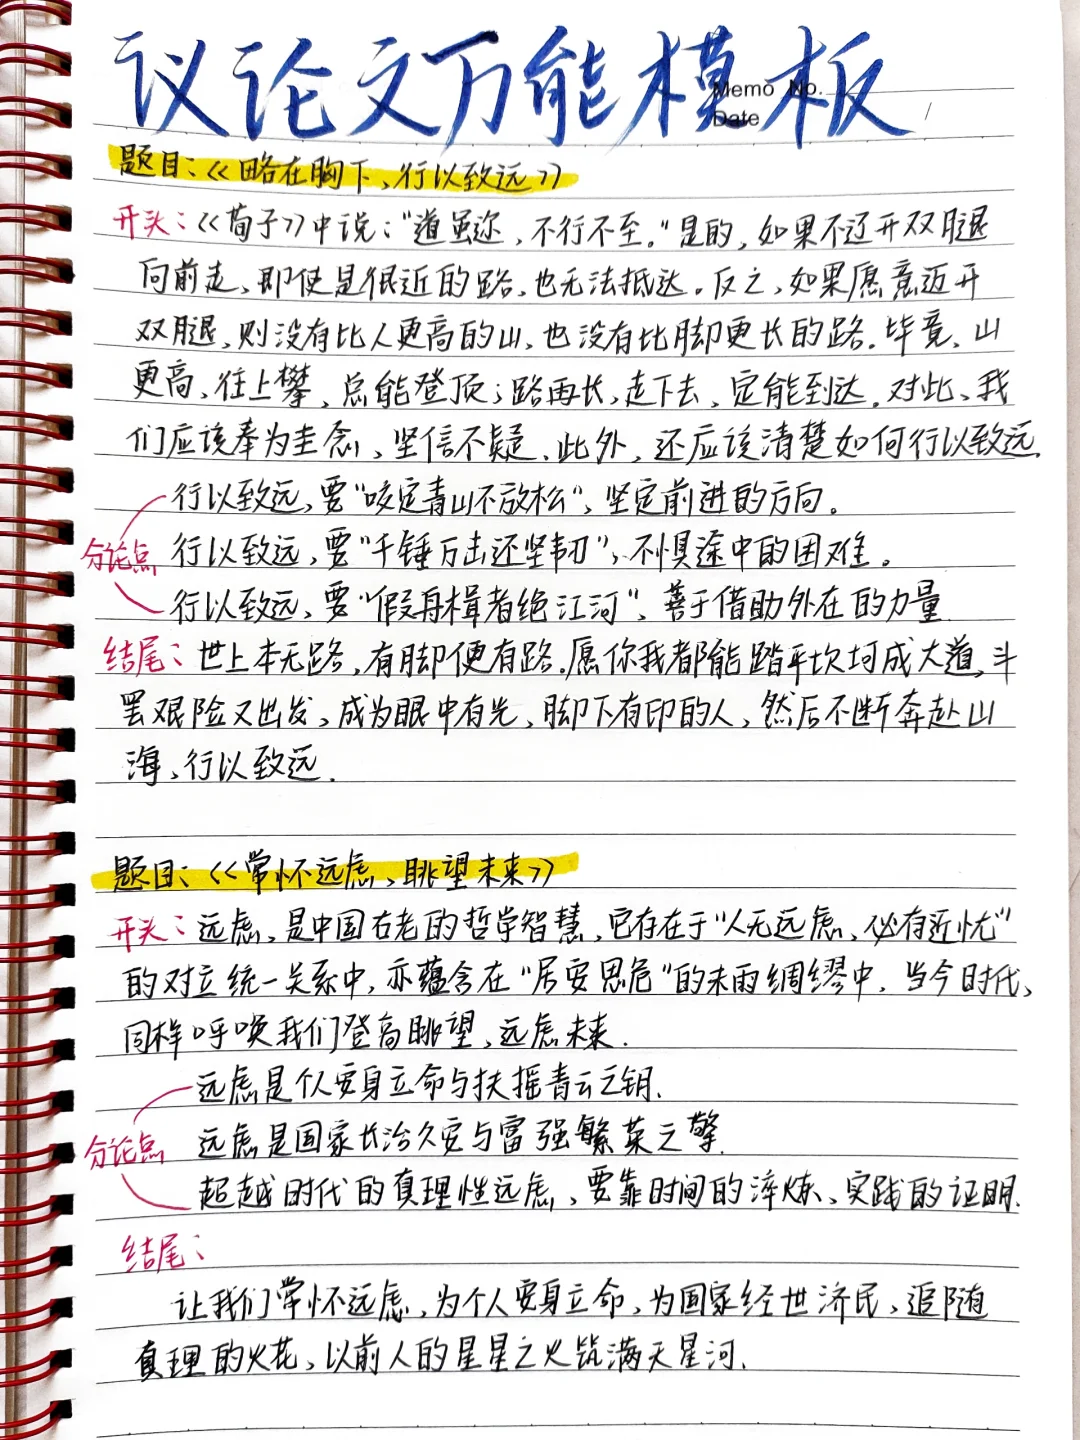 议论文万能模板
Memo No.
Date
题目:《略在胸下、行以致远》
开头:《荀子》中说:“道虽迩,不行不至。”是的,如果不迈开双腿
向前走,即使是很近的路,也无法抵达。反之,如果愿意迈开
双腿,则没有比人更高的山,也没有比脚更长的路。毕竟,山
更高,往上攀,总能登顶;路再长,走下去,定能到达。对此,我
们应该奉为圭念,坚信不疑、此外,还应该清楚如何行以致远
行以致远,要“咬定青山不放松”,坚定前进的方向。
分论点 行以致远,要“千锤万击还坚韧”、不惧途中的困难。
行以致远,要“假舟楫者绝江河”、善于借助外在的力量
结尾:世上本无路,有脚便有路。愿你我都能踏平坎坷成大道,斗
罢艰险又出发,成为眼中有光,脚下有印的人,然后不断奔赴山
海,行以致远.
题目:《常怀远虑、眺望未来》
开头:远虑,是中国古老的哲学智慧,它存在于“人无远虑,必有近忧”
的对立统一关系中,亦蕴含在“居安思危”的未雨绸缪中.当今时代、
同样呼唤我们登高眺望、远虑未来.
远虑是个人安身立命与扶摇青云之钥.
分论点 远虑是国家长治久安与富强繁荣之擎.
超越时代的真理性远虑、要靠时间的淬炼、实践的证明.
结尾:
让我们常怀远虑,为个人安身立命,为国家经世济民,追随
真理的火花,以前人的星星之火筑满天星河.